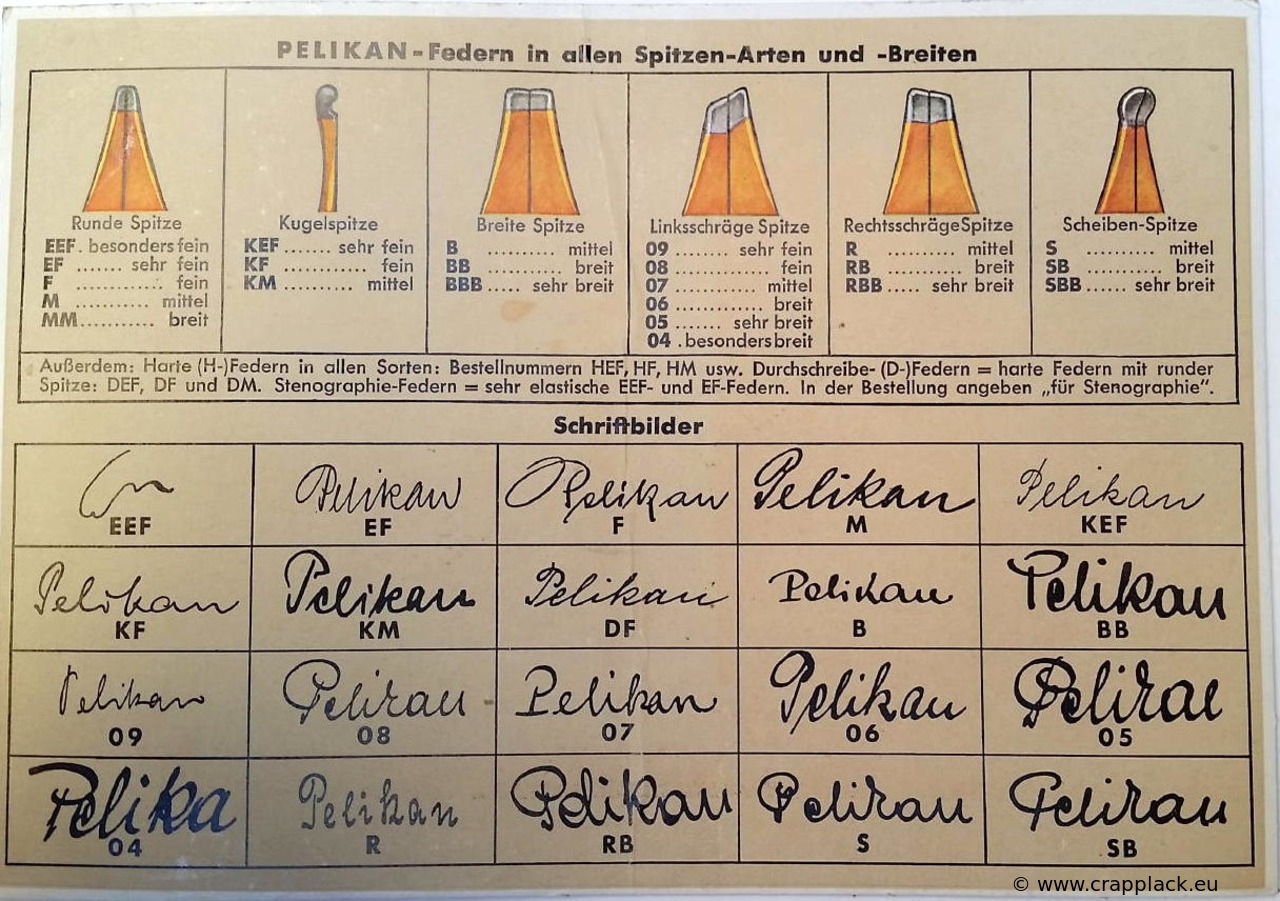 PELIKAN-Federn in allen Spitzen-Arten und -Breiten
Runde Spitze
EEF . besonders fein
EF ....... sehr fein
F ............ fein
M ........... mittel
MM ........... breit
Kugelspitze
KEF ....... sehr fein
KF ............ fein
KM .......... mittel
Breite Spitze
B .......... mittel
BB ........... breit
BBB ..... sehr breit
Linksschräge Spitze
09 ........ sehr fein
08 ............ fein
07 .......... mittel
06 ........... breit
05 ....... sehr breit
04 . besonders breit
Rechtsschräge Spitze
R .......... mittel
RB .......... breit
RBB ..... sehr breit
Scheiben-Spitze
S .......... mittel
SB ........... breit
SBB ...... sehr breit
Außerdem: Harte (H-)Federn in allen Sorten: Bestellnummern HEF, HF, HM usw. Durchschreibe- (D-)Federn = harte Federn mit runder
Spitze: DEF, DF und DM. Stenographie-Federn = sehr elastische EEF- und EF-Federn. In der Bestellung angeben „für Stenographie“.
Schriftbilder
EEF
Pelikan
EF
Pelikan
F
Pelikan
M
Pelikan
KEF
Pelikan
KF
Pelikan
KM
Pelikan
DF
Pelikan
B
Pelikan
BB
Pelikan
09
Pelikan
08
Pelikan
07
Pelikan
06
05
Pelika
04
Pelikan
R
Pelikan
RB
Pelikan
S
Pelikan
SB
© www.crapplack.eu